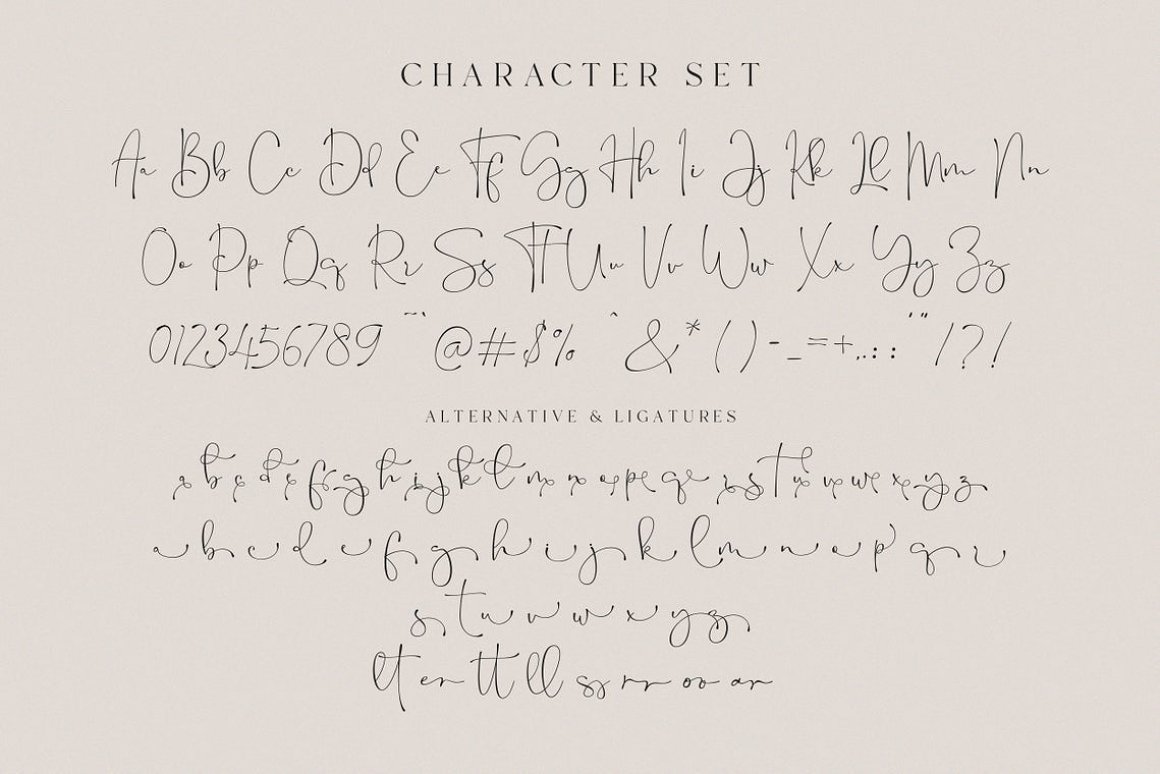 CHARACTER SET
Aa Bb Cc Dd Ee Ff Gg Hh Ii Jj Kk Ll Mm Nn
Oo Pp Qq Rr Ss Tt Uu Vv Ww Xx Yy Zz
0123456789 ~ " ' @#$% ^ &*()-_=+,.:; '" /?!
ALTERNATIVE & LIGATURES
a b c d e f g h i j k l m n o p q r s t u v w x y z
a b c d e f g h i j k l m n o p q r
s t u v w x y z
lt er tt ll ss rr oo ar